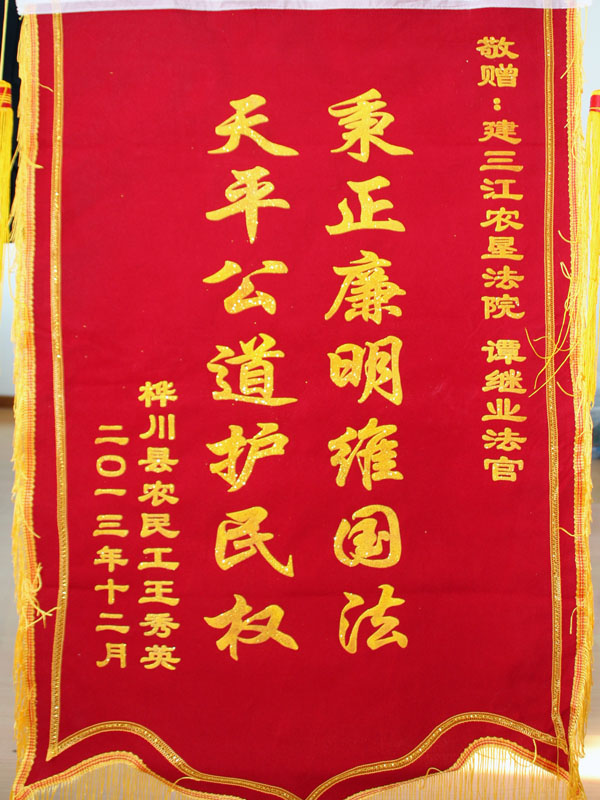 敬赠：建三江农垦法院 谭继业法官
秉正廉明维国法
天平公道护民权
桦川县农民工王秀英
二〇一三年十二月